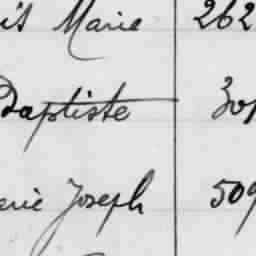 Marie 262
Baptiste
Joseph 509